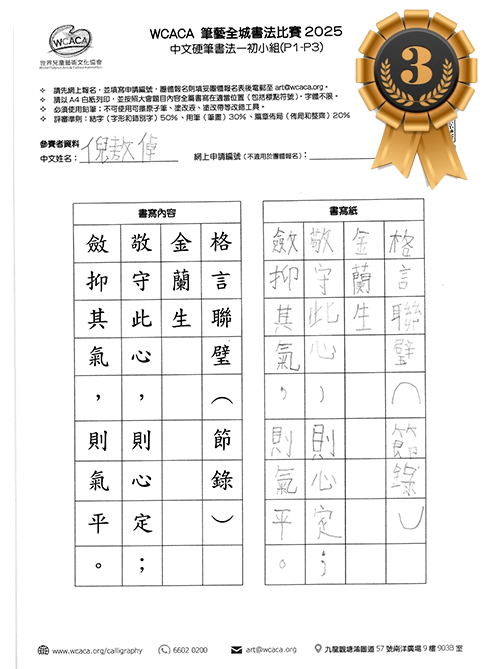 WCACA
世界兒童藝術文化協會
WCACA 筆藝全城書法比賽 2025
中文硬筆書法－初小組(P1-P3)
3
❖ 請先網上報名，並填寫申請編號。團體報名則填妥團體報名表後電郵至 art@wcaca.org。
❖ 請以 A4 白紙列印，並按照大會題目內容全篇書寫在適當位置（包括標點符號），字體不限。
❖ 必須使用鉛筆；不可使用可擦原子筆、塗改液、塗改帶等改錯工具。
❖ 評審準則：結字（字形和錯別字）50%、用筆（筆畫）30%、篇章佈局（佈局和整齊）20%
參賽者資料
中文姓名：倪敖倬
網上申請編號（不適用於團體報名）：
書寫內容
格言聯璧（節錄）
金蘭生
敬守此心，則心定；
斂抑其氣，則氣平。
書寫紙
格言聯璧（節錄）
金蘭生
敬守此心，則心定；
斂抑其氣，則氣平。
www.wcaca.org/calligraphy
6602 0200
art@wcaca.org
九龍觀塘鴻圖道 57 號南洋廣場 9 樓 903B 室